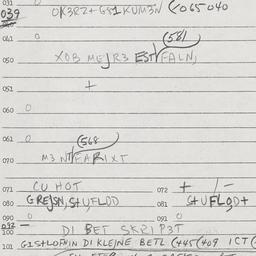 031 0
039 OK3RZ+ G81KUM3N (065 040
061 0
(581)
050 XOB MEJR3 EST/FALN,
+
051
060 0
061 0
(568)
070 M3NT/FARIXT
071 CU HOT 072 + /-
080 GREJSN, S+UFLOD 081 S+UFLOD+
090 0 091 0
092 -
100 DI BET SKRIP3T
101 G1S+LOFNIN DI KLEJNE BETL (445 (409 ICT (